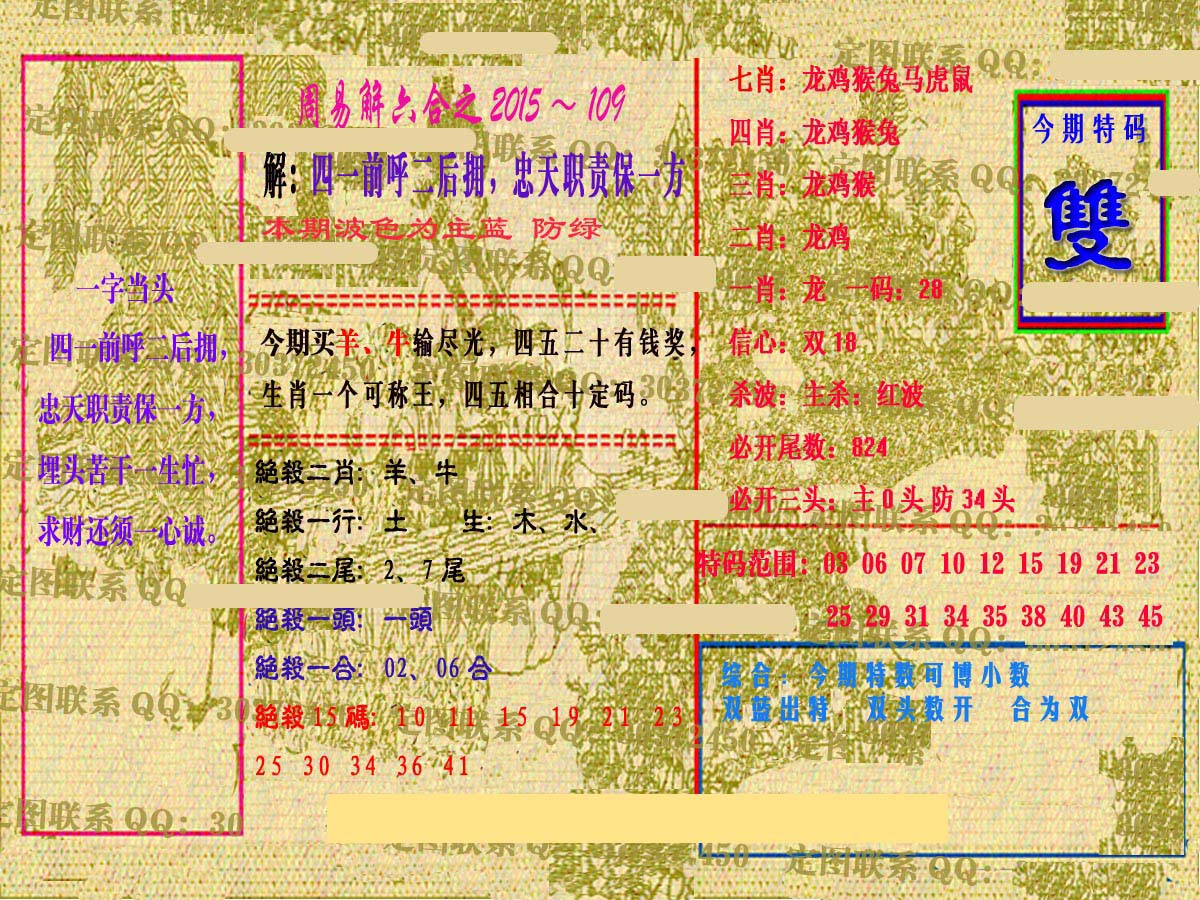 周易解六合之2015～109
解：四一前呼二后拥，忠天职责保一方
本期波色为主蓝 防绿
一字当头
四一前呼二后拥，
忠天职责保一方，
埋头苦干一生忙，
求财还须一心诚。
今期买羊、牛输尽光，四五二十有钱奖，
生肖一个可称王，四五相合十定码。
絕殺二肖：羊、牛
絕殺一行：土 生：木、水、
絕殺二尾：2、7尾
絕殺一頭：一頭
絕殺一合：02、06合
絕殺15碼：10 11 15 19 21 23
25 30 34 36 41
七肖：龙鸡猴兔马虎鼠
四肖：龙鸡猴兔
三肖：龙鸡猴
二肖：龙鸡
一肖：龙 一码：28
信心：双18
杀波：主杀：红波
必开尾数：824
必开三头：主0头防34头
今期特码
雙
特码范围：03 06 07 10 12 15 19 21 23
25 29 31 34 35 38 40 43 45
综合：今期特数可博小数
双蓝出特 双头数开 合为双
定图联系QQ：